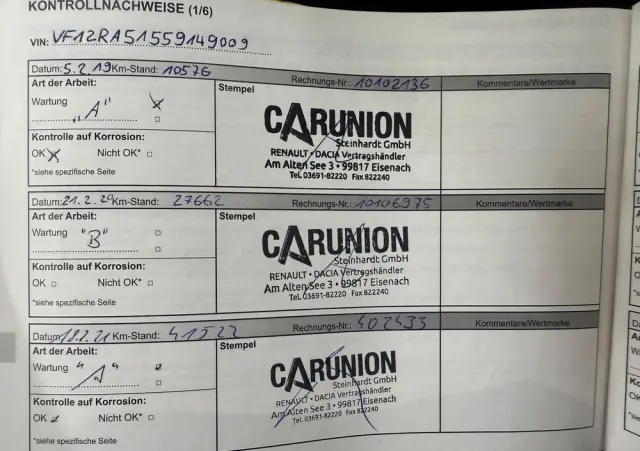 KONTROLLNACHWEISE (1/6)
VIN: VF12RA51559149009
Datum: 5.2.19 Km-Stand: 10576 Rechnungs-Nr.: 10102136 Kommentare/Wertmarke
Art der Arbeit: Stempel
Wartung
"A"
CARUNION
Steinhardt GmbH
RENAULT • DACIA Vertragshändler
Am Alten See 3 • 99817 Eisenach
Tel. 03691-82220 Fax 822240
Kontrolle auf Korrosion:
OK Nicht OK*
*siehe spezifische Seite
Datum: 21.2.20 Km-Stand: 27662 Rechnungs-Nr.: 10106975 Kommentare/Wertmarke
Art der Arbeit: Stempel
Wartung "B"
CARUNION
Steinhardt GmbH
RENAULT • DACIA Vertragshändler
Am Alten See 3 • 99817 Eisenach
Tel. 03691-82220 Fax 822240
Kontrolle auf Korrosion:
OK Nicht OK*
*siehe spezifische Seite
Datum: 18.2.21 Km-Stand: 41522 Rechnungs-Nr.: 402433 Kommentare/Wertmarke
Art der Arbeit: Stempel
Wartung "A"
CARUNION
Steinhardt GmbH
RENAULT • DACIA Vertragshändler
Am Alten See 3 • 99817 Eisenach
Tel. 03691-82220 Fax 822240
Kontrolle auf Korrosion:
OK Nicht OK*
*siehe spezifische Seite